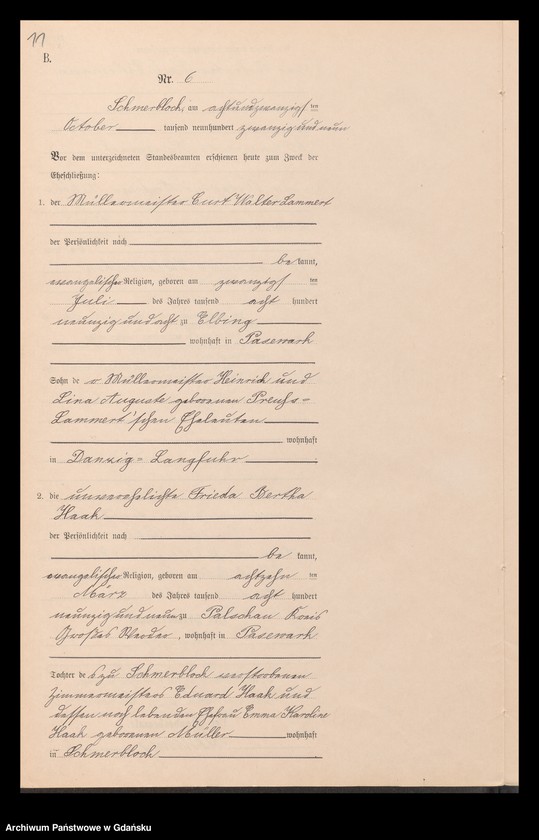 11
B.
Nr. 6
Schmerblock, am achtundzwanzigsten
October tausend neunhundert zwanzig und neun
Vor dem unterzeichneten Standesbeamten erschienen heute zum Zweck der
Eheschließung:
1. der Müllermeister Curt Walter Lammert
der Persönlichkeit nach
be kannt,
evangelischer Religion, geboren am zwanzigsten
Juli des Jahres tausend acht hundert
neunzig und acht zu Elbing
wohnhaft in Pasewark
Sohn der Müllermeister Heinrich und
Lina Auguste geborenen Preuhs-
Lammert'schen Eheleuten
wohnhaft
in Danzig-Langfuhr
2. die unverehelichte Frieda Bertha
Haak
der Persönlichkeit nach
be kannt,
evangelischer Religion, geboren am achtzehn ten
März des Jahres tausend acht hundert
neunzig und neun zu Palschau Kreis
Großes Werder, wohnhaft in Pasewark
Tochter des zu Schmerblock verstorbenen
Zimmermeisters Eduard Haak und
dessen noch lebenden Ehefrau Emma Karoline
Haak geborenen Müller wohnhaft
in Schmerblock
Archiwum Państwowe w Gdańsku